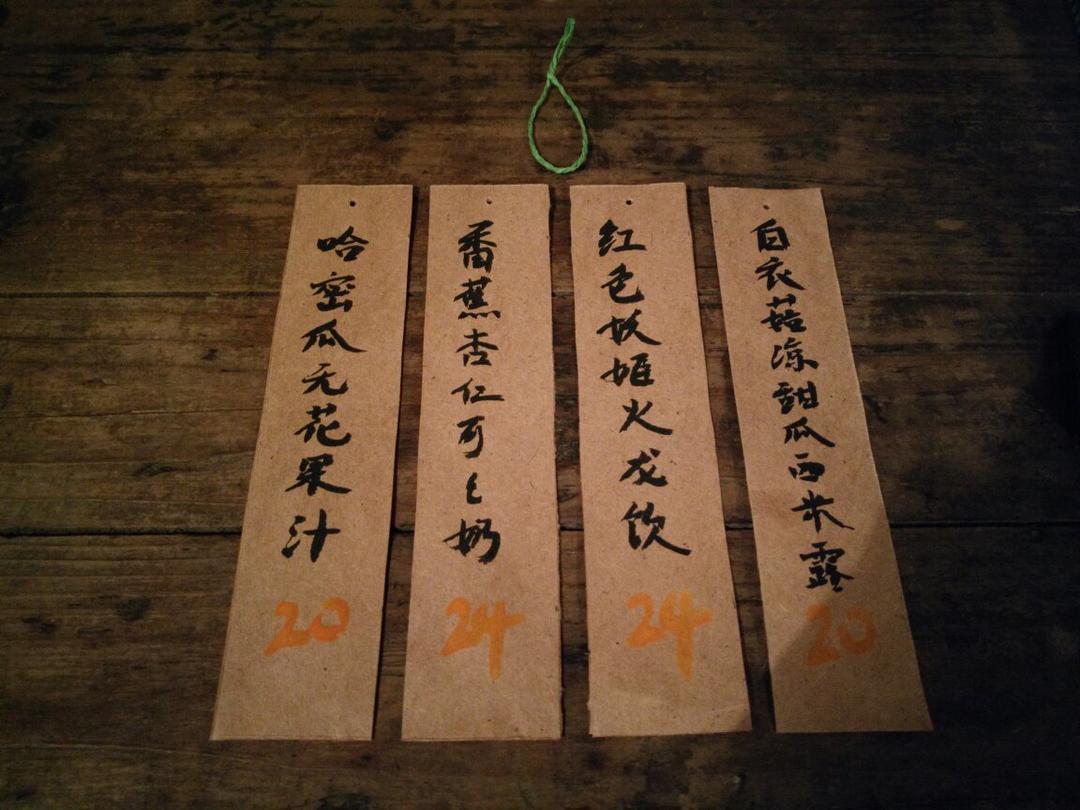 哈密瓜无花果汁
20
香蕉杏仁可々奶
24
红色妖姬火龙饮
24
白衣菇凉甜瓜西米露
20